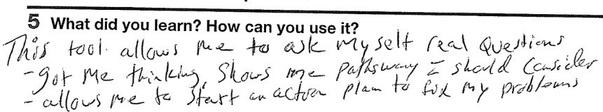 5 What did you learn? How can you use it?
This tool allows me to ask myself real questions
- got me thinking, shows me pathway I should consider
- allows me to start an action plan to fix my problems